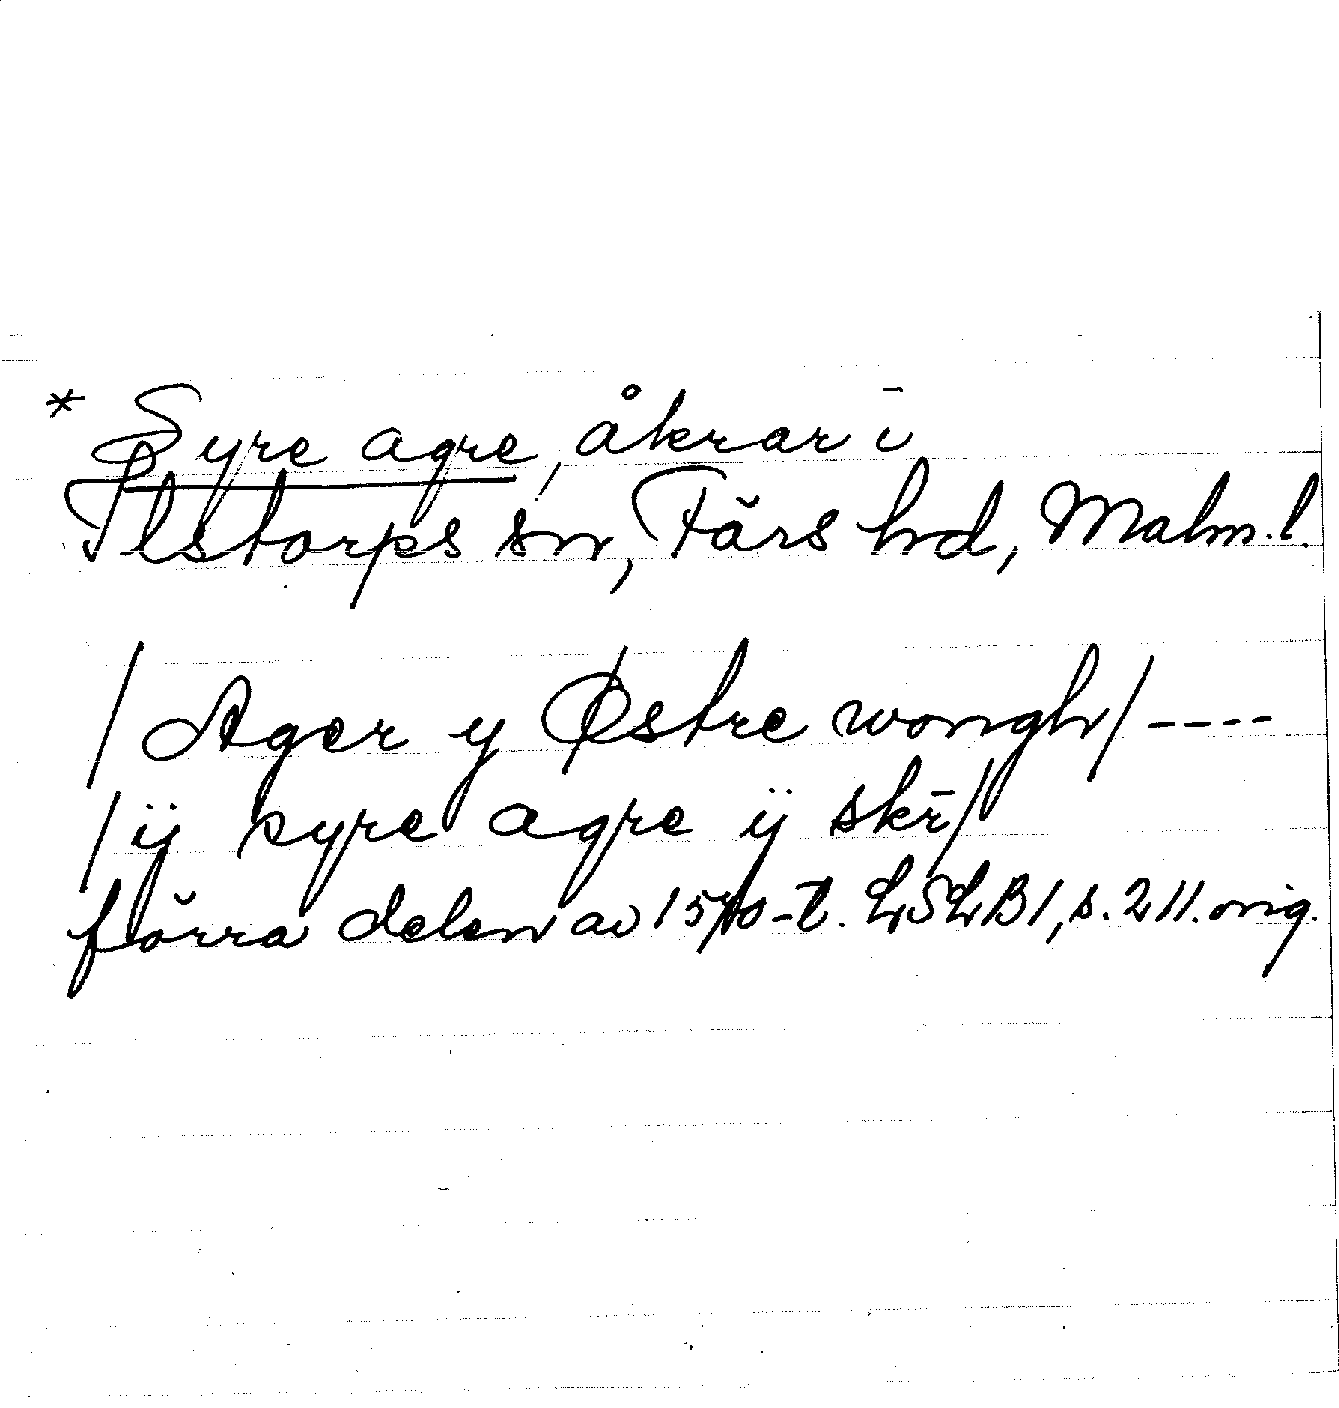 * Syre agre, åkrar i
Ilstorps sn, Färs hd, Malm. l.
/Ager y Østre wongh/ ----
/ÿ syre agre ÿ skr̄/
förra delen av 1570-t. LSLB1, s. 211. orig.